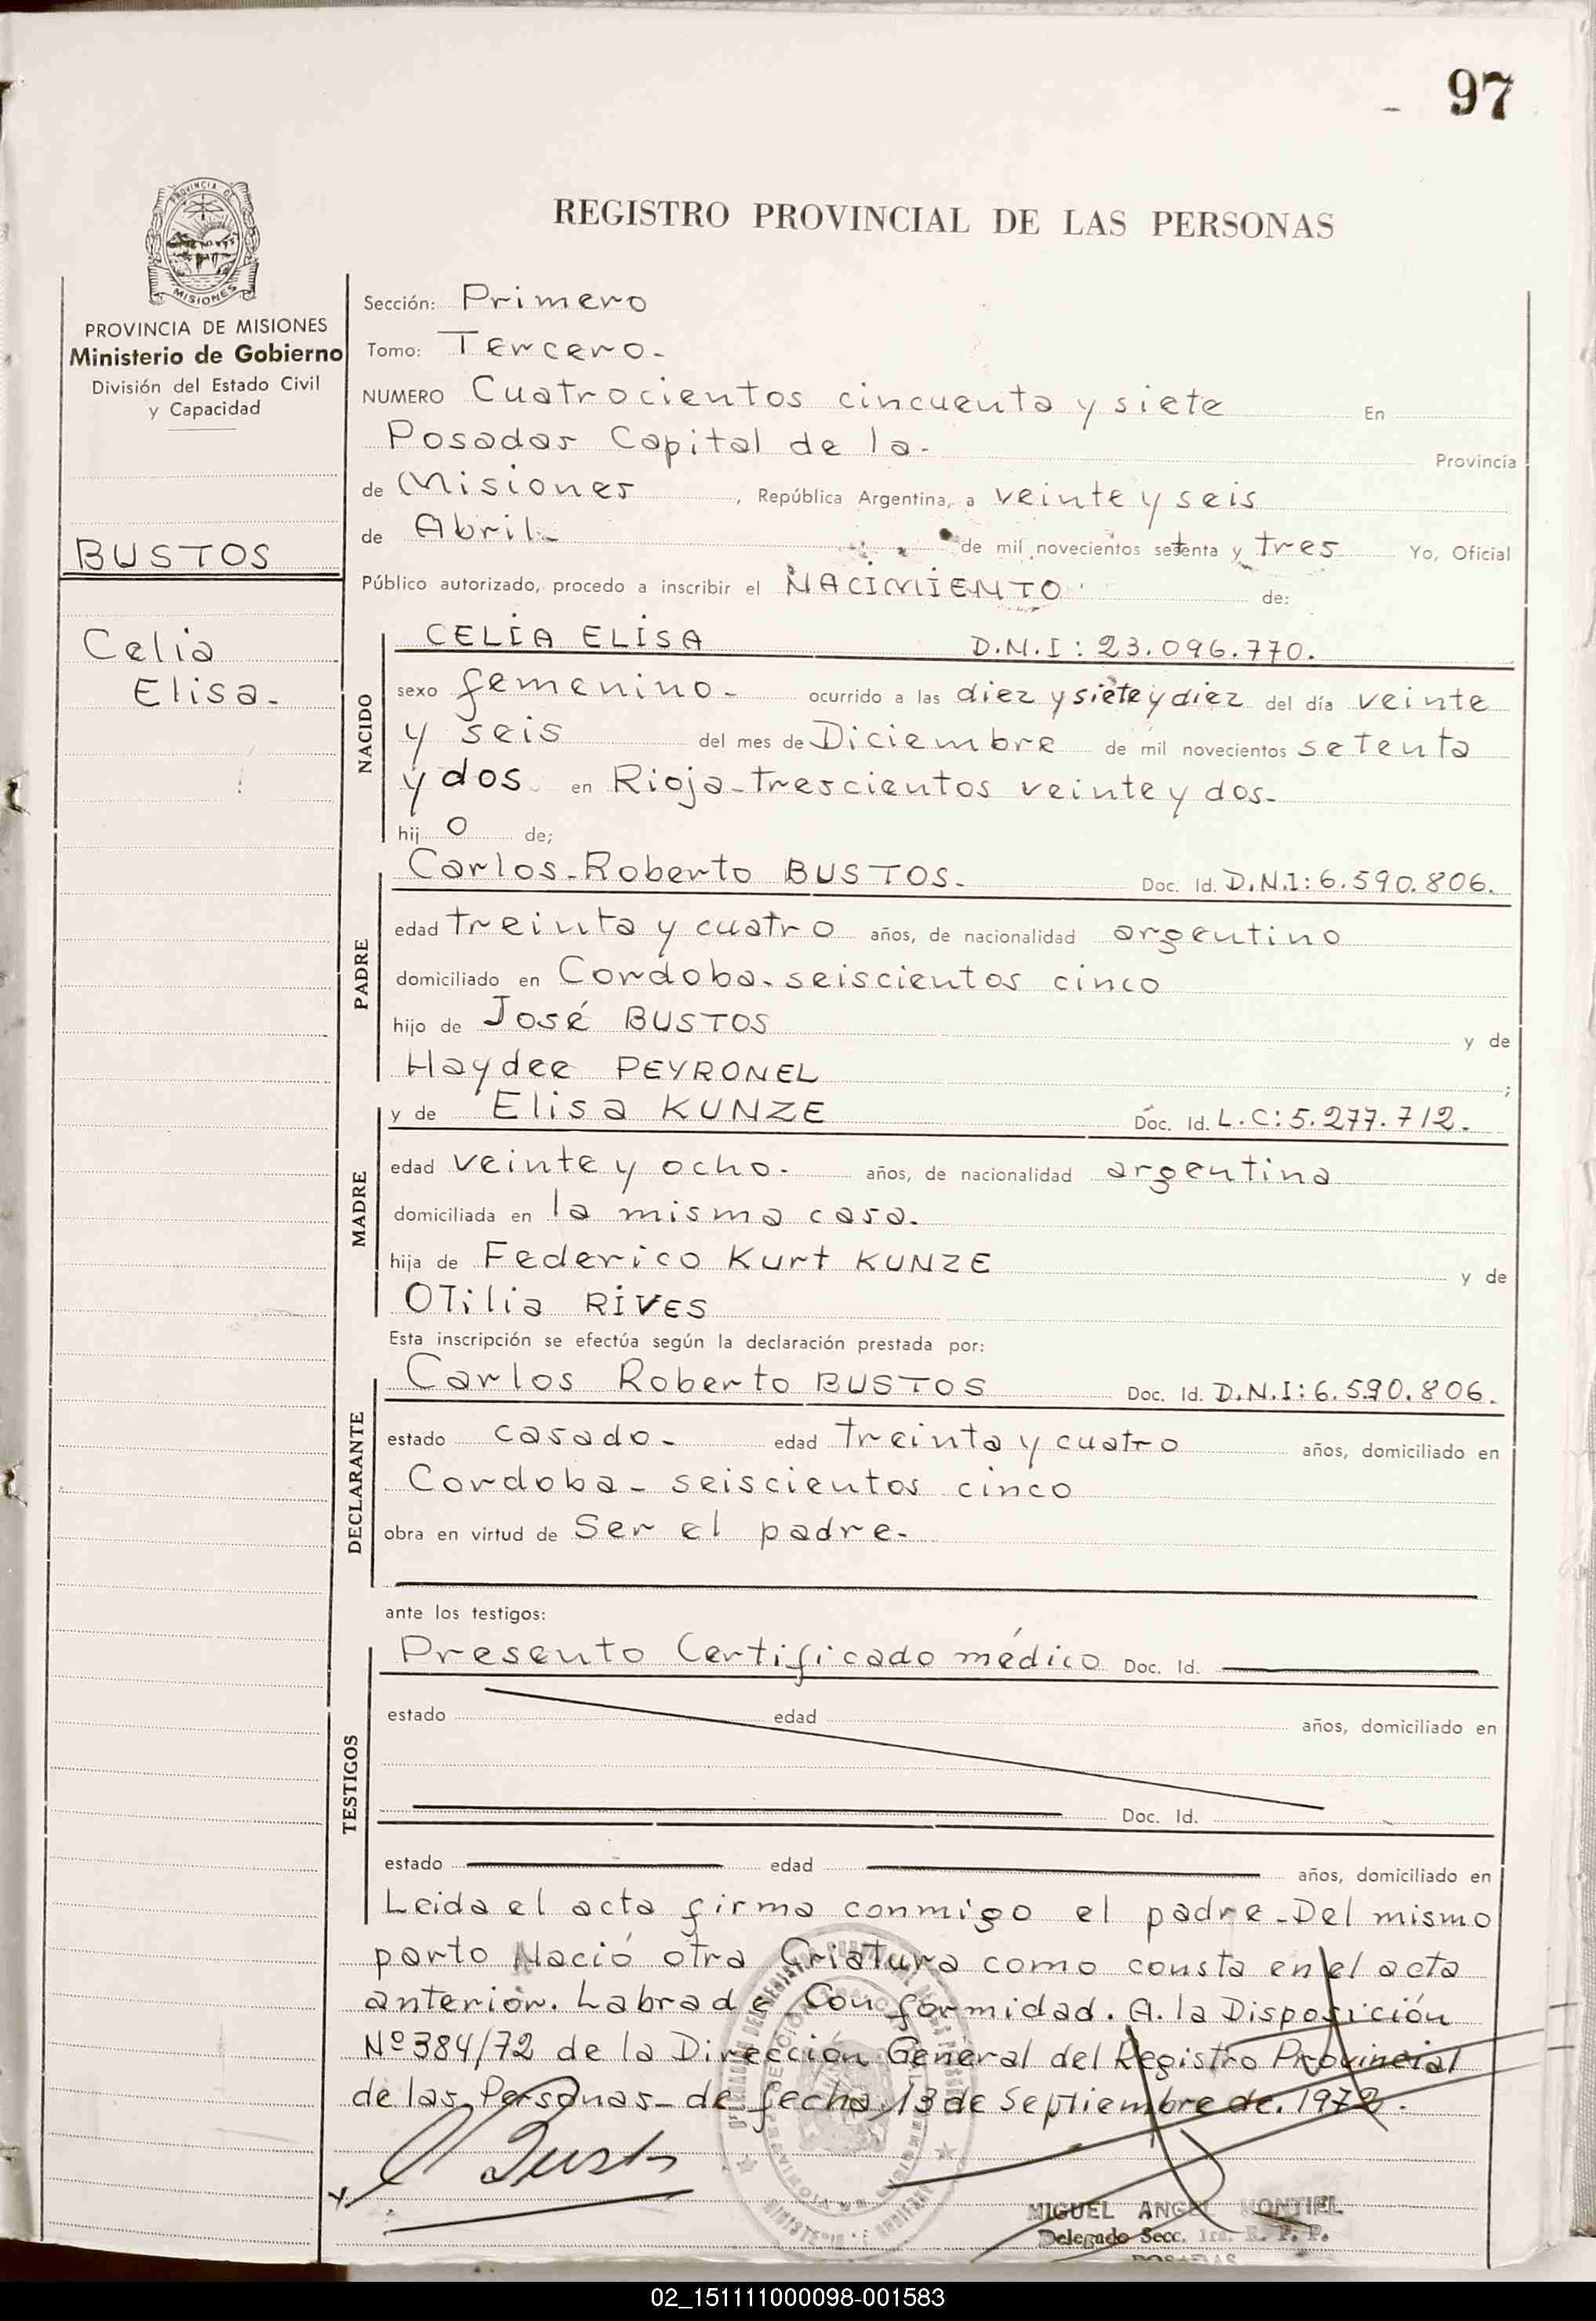 97
REGISTRO PROVINCIAL DE LAS PERSONAS
PROVINCIA DE
MISIONES
PROVINCIA DE MISIONES
Ministerio de Gobierno
División del Estado Civil
y Capacidad
BUSTOS
Celia
Elisa.
Sección: Primero
Tomo: Tercero.
NUMERO Cuatrocientos cincuenta y siete En
Posadas Capital de la. Provincia
de Misiones , República Argentina, a veinte y seis
de Abril. de mil novecientos setenta y tres Yo, Oficial
Público autorizado, procedo a inscribir el NACIMIENTO de:
NACIDO
CELIA ELISA D.N.I: 23.096.770.
sexo femenino. ocurrido a las diez y siete y diez del día veinte
y seis del mes de Diciembre de mil novecientos setenta
y dos en Rioja-trescientos veinte y dos.
hij o de;
PADRE
Carlos-Roberto BUSTOS. Doc. Id. D.N.I: 6.590.806.
edad treinta y cuatro años, de nacionalidad argentino
domiciliado en Cordoba. seiscientos cinco
hijo de José BUSTOS y de
Haydee PEYRONEL ;
MADRE
y de Elisa KUNZE Doc. Id. L.C: 5.277.712.
edad veinte y ocho. años, de nacionalidad argentina
domiciliada en la misma casa.
hija de Federico Kurt KUNZE y de
OTilia RIVES
Esta inscripción se efectúa según la declaración prestada por:
DECLARANTE
Carlos Roberto BUSTOS Doc. Id. D.N.I: 6.590.806.
estado casado. edad treinta y cuatro años, domiciliado en
Cordoba - seiscientos cinco
obra en virtud de Ser el padre.
ante los testigos:
TESTIGOS
Presento Certificado médico Doc. Id.
estado edad años, domiciliado en
Doc. Id.
estado edad años, domiciliado en
Leida el acta firma conmigo el padre. Del mismo
parto Nació otra Criatura como consta en el acta
anterior. Labrad de Conformidad. A. la Disposición
Nº 384/72 de la Dirección General del Registro Provincial
de las Personas- de fecha, 13 de Septiembre de. 1972.
MIGUEL ANGEL MONTIEL
Delegado Secc. 1ra. R. P. P.
POSADAS
02_151111000098-001583